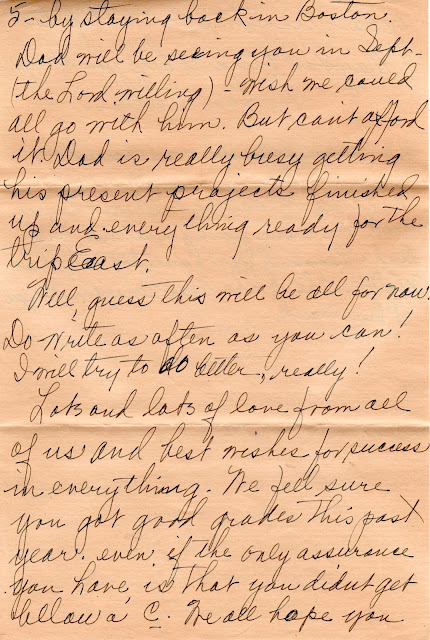 5- by staying back in Boston.
Dad will be seeing you in Sept-
(the Lord willing) - wish we could
all go with him. But can't afford
it. Dad is really busy getting
his present projects finished
up and everything ready for the
trip East.
Well, guess this will be all for now.
Do write as often as you can!
I will try to do better, really!
Lots and lots of love from all
of us and best wishes for success
in everything. We fell sure
you got good grades this past
year. even if the only assurance
you have is that you didn't get
bellow a C. We all hope you